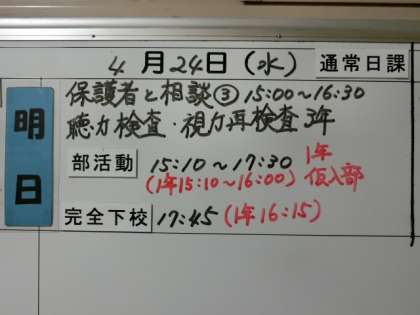 4月24日(水) 通常日課
明日
保護者と相談③ 15:00～16:30
聴力検査・視力再検査 3年
部活動 15:10～17:30 1年
(1年15:10～16:00) 仮入部
完全下校 17:45 (1年16:15)